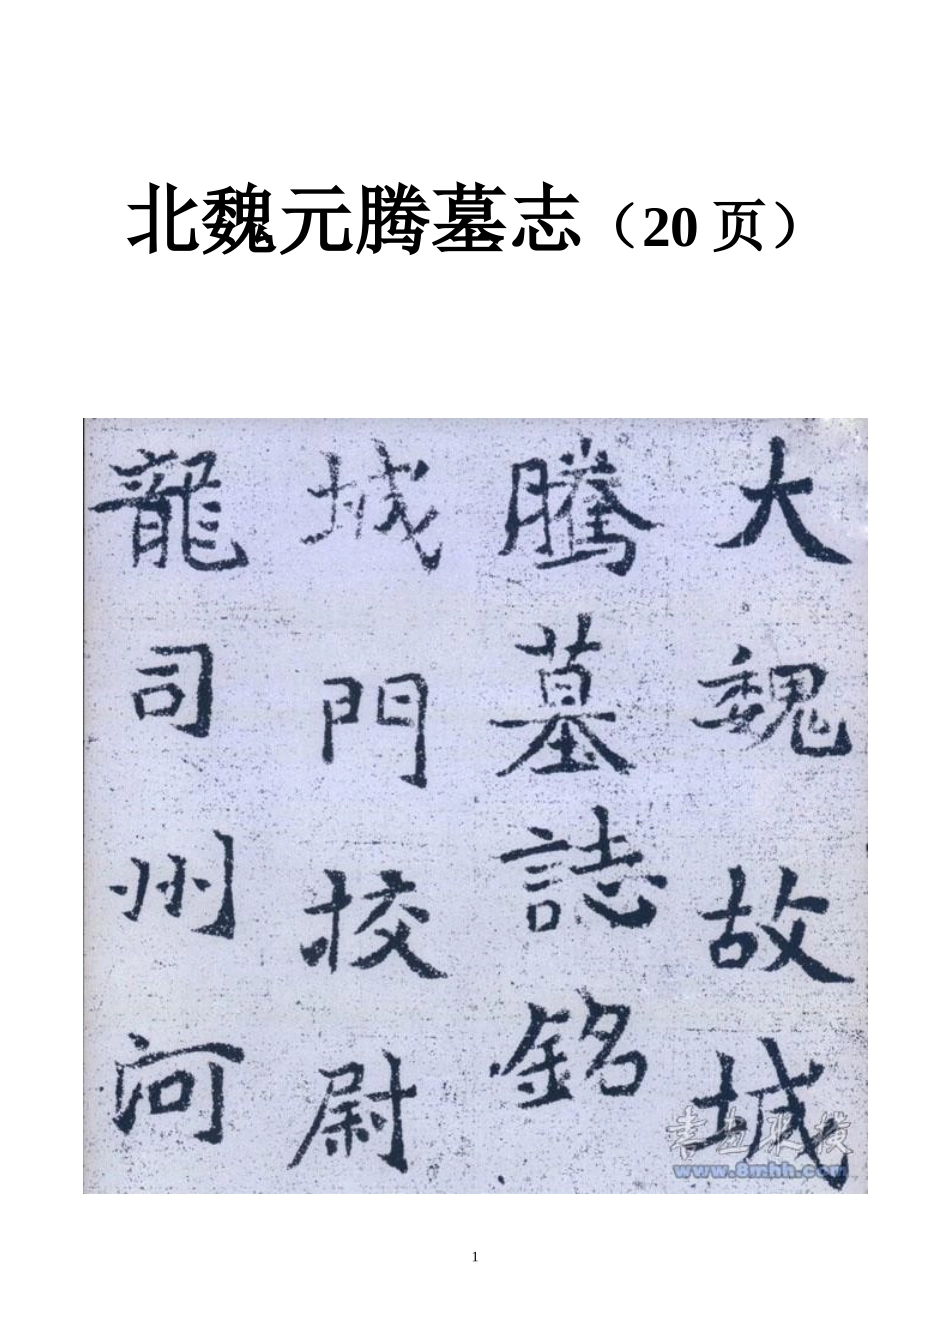 北魏元腾墓志（20 页）
大魏故城
騰墓誌銘
城門挍尉
龍司州河
www.8mhh.com
1